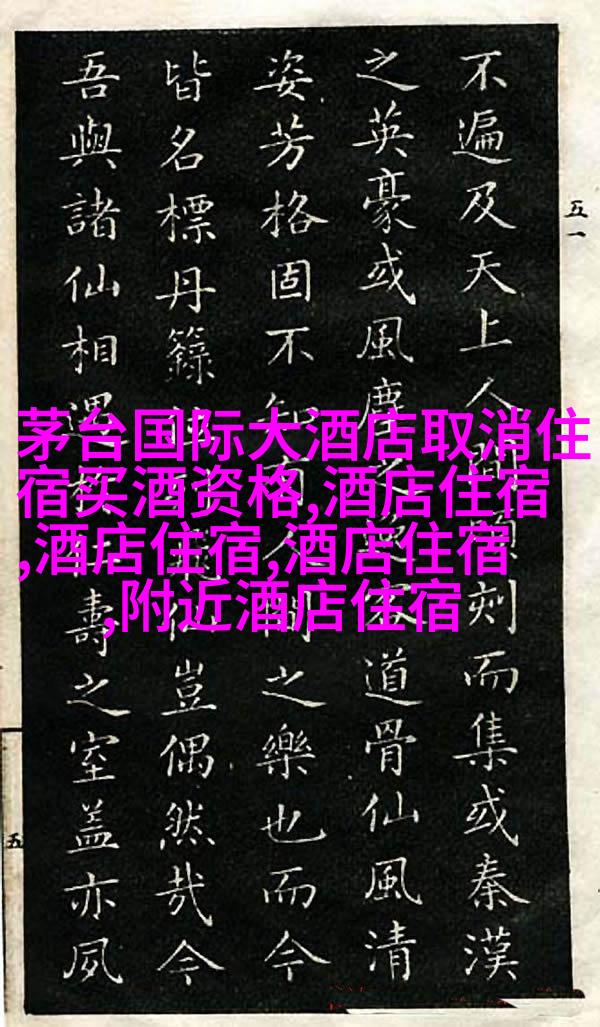 茅台国际大酒店取消住
宿买酒资格,酒店住宿
,酒店住宿,酒店住宿
,附近酒店住宿
五一
不遍及天上人間刻而集或秦漢
之英豪或風塵之客道骨仙風清
姿芳格固不知有人間之樂也而今
皆名標丹籙仙豈偶然哉今
吾與諸仙相遇於仁壽之室蓋亦夙
五